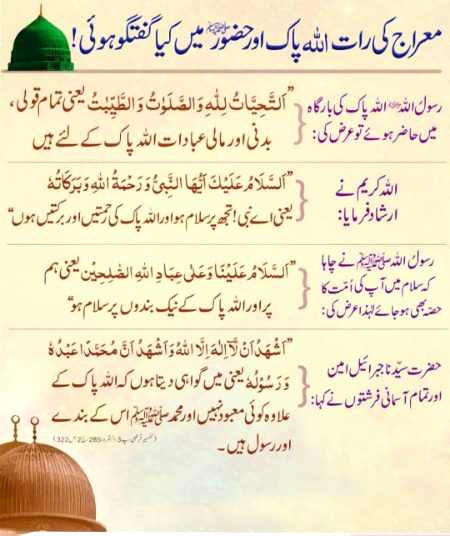 معراج کی رات اللہ پاک اور حضور ﷺ میں کیا گفتگو ہوئی!
رسول اللہ ﷺ اللہ پاک کی بارگاہ
میں حاضر ہوئے تو عرض کی:
”اَلتَّحِیَّاتُ لِلّٰہِ وَالصَّلَوٰتُ وَالطَّیِّبٰتُ یعنی تمام قولی،
بدنی اور مالی عبادات اللہ پاک کے لئے ہیں
اللہ کریم نے
ارشاد فرمایا:
”اَلسَّلَامُ عَلَیْكَ اَیُّهَا النَّبِیُّ وَرَحْمَةُ اللهِ وَبَرَكَاتُهٗ
یعنی اے نبی! تجھ پر سلام ہو اور اللہ پاک کی رحمتیں اور برکتیں ہوں“
رسول اللہ ﷺ نے چاہا
کہ سلام میں آپ کی اُمّت کا
حصّہ بھی ہو جائے لہٰذا عرض کی:
”اَلسَّلَامُ عَلَیْنَا وَعَلٰی عِبَادِ اللهِ الصّٰلِحِیْن یعنی ہم
پر اور اللہ پاک کے نیک بندوں پر سلام ہو“
حضرت سیّدنا جبرائیل امین
اور تمام آسمانی فرشتوں نے کہا:
”اَشْهَدُ اَنْ لَّآ اِلٰهَ اِلَّا اللهُ وَاَشْهَدُ اَنَّ مُحَمَّدًا عَبْدُهٗ
وَرَسُوْلُهٗ یعنی میں گواہی دیتا ہوں کہ اللہ پاک کے
علاوہ کوئی معبود نہیں اور محمد ﷺ اس کے بندے
اور رسول ہیں۔ (تفسیر قرطبی، پ3، البقرۃ، 285، ج2، ص322)